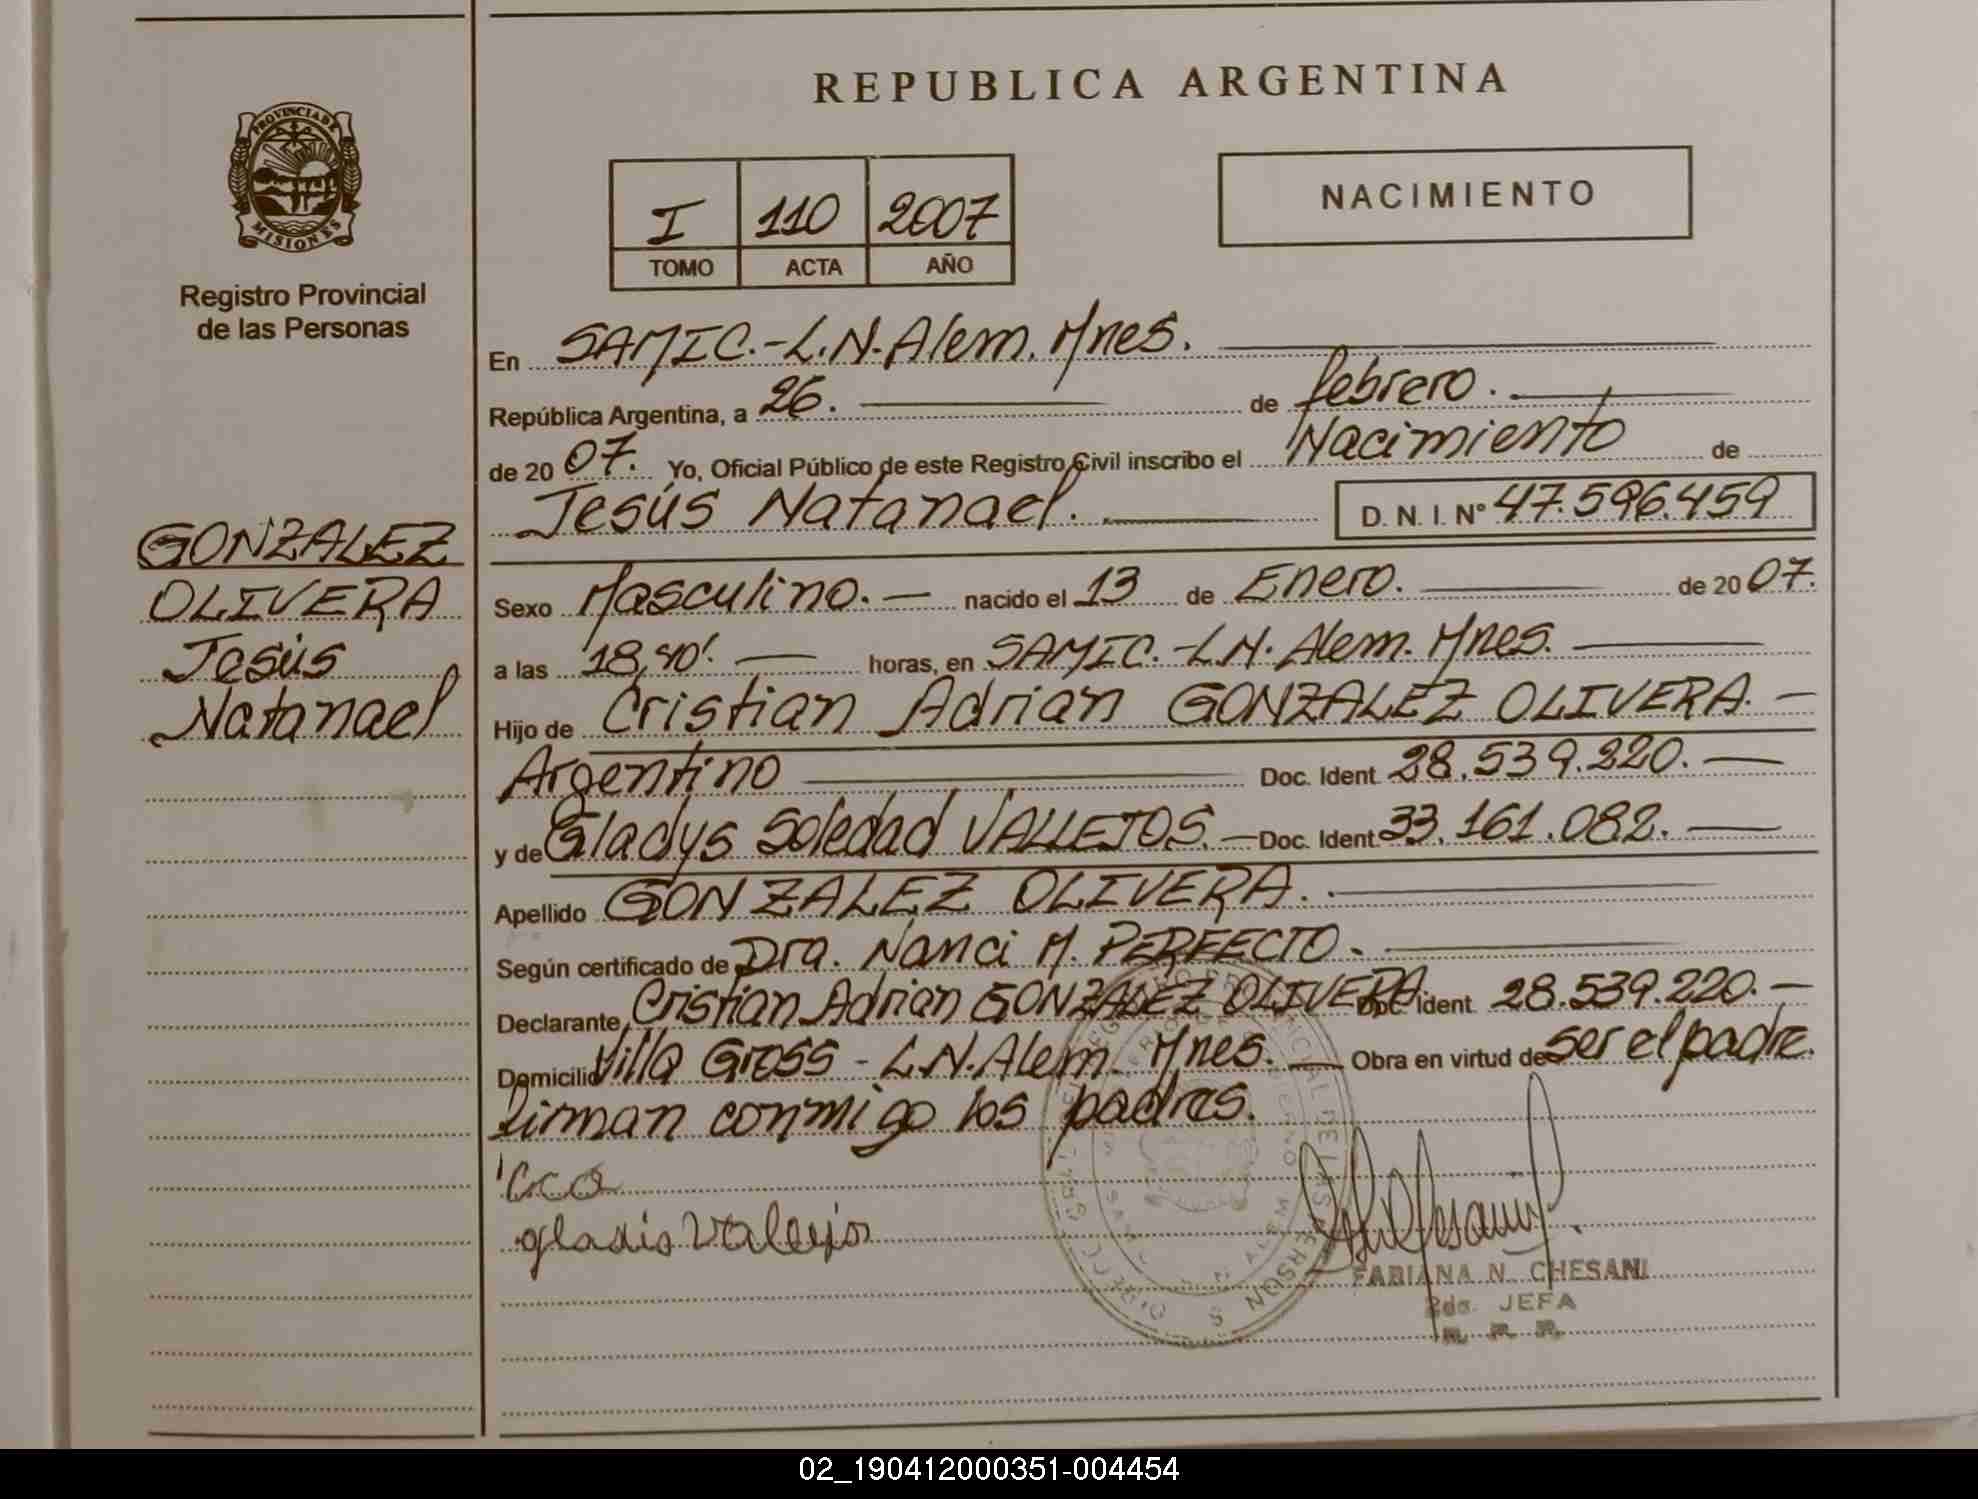 REPUBLICA ARGENTINA
PROVINCIA DE
MISIONES
Registro Provincial
de las Personas
I 110 2007
TOMO ACTA AÑO
NACIMIENTO
GONZALEZ
OLIVERA
Jesús
Natanael
En SAMIC.-L.N.Alem. Mnes.
República Argentina, a 26. de febrero.
de 20 07. Yo, Oficial Público de este Registro Civil inscribo el Nacimiento de
Jesús Natanael. D. N. I. Nº 47.596.459
Sexo Masculino. nacido el 13 de Enero. de 20 07.
a las 18,40'. horas, en SAMIC.-L.N. Alem. Mnes.
Hijo de Cristian Adrian GONZALEZ OLIVERA.
Argentino Doc. Ident. 28.539.220.
y de Gladys Soledad VALLEJOS. Doc. Ident. 33.161.082.
Apellido GONZALEZ OLIVERA.
Según certificado de Dra. Nanci M. PERFECTO.
Declarante Cristian Adrian GONZALEZ OLIVERA. Doc. Ident 28.539.220.
Domicilio Villa Gross - L.N.Alem. Mnes. Obra en virtud de ser el padre.
firman conmigo los padres.
gladis Vallejos
FABIANA N. CHESANI
2da. JEFA
02_190412000351-004454